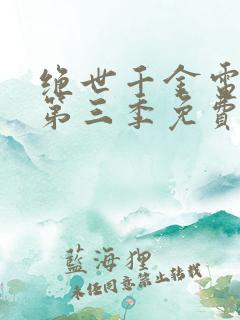 绝世千金電
第三季免費
藍海狸
未经同意禁止转载